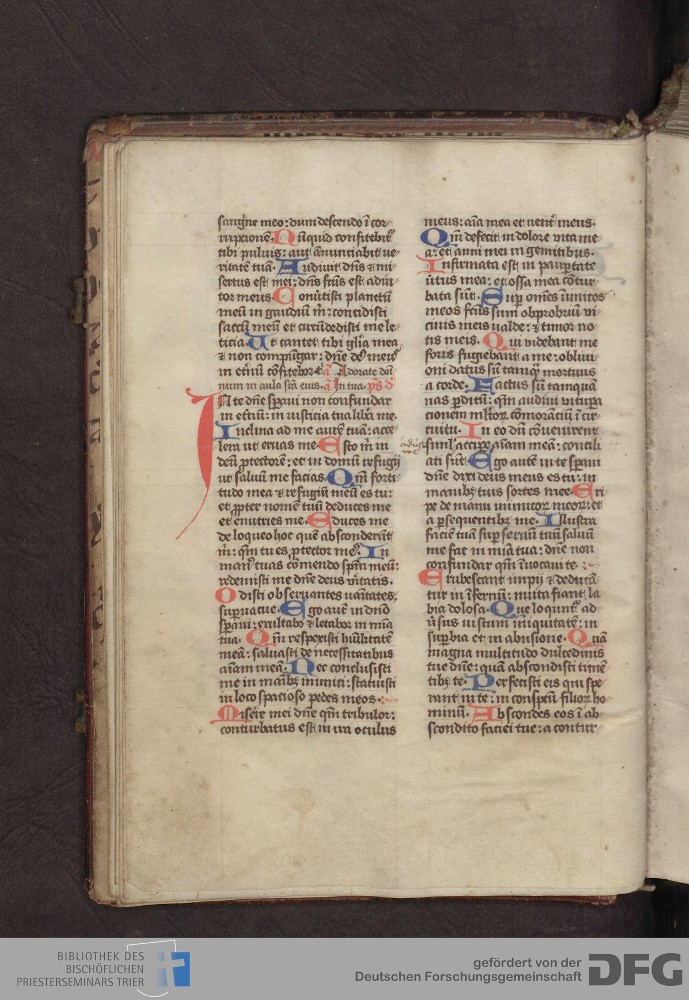 sangīne meo: dum descendo ī cor-
rupcionē. Nūquid confitebit᷑
tibi puluis: aut ānunciabit ve-
ritatē tuā. Audiuit dn̄s ⁊ mi-
sertus est mei: dn̄s fc̄us est adiu-
tor meus. Conūtisti planctū
meū in gaudiū m̄: concidisti
saccū meū et circūdedisti me le-
ticia. Ut cantet tibi gl̄ia mea
⁊ non compūgar: dn̄e de᷒ me᷒
in et̄nū cōfitebor t᷑. a᷑ Adorate dom̄
num in aula sc̄a eius. a᷑ In tua. ps̄ d̄
IN te dn̄e sꝑaui non confundar
in et̄nū: in iusticia tua lib̄a me.
Inclina ad me aurē tuā: acce-
lera ut eruas me. Esto m̄ in
deū ꝓtectorē: et in domū refugij
ut saluū me facias. Qm̄ forti-
tudo mea ⁊ refugiū meū es tu:
et ꝓpter nomē tuū deduces me
et enutries me. Educes me
de loqueo hoc quē absconderūt
m̄: qm̄ tu es ꝓtector me᷒. In
man᷒ tuas cōmendo spm̄ meū:
redemisti me dn̄e deus v̄itatis.
Odisti obseruantes uanitates:
suꝑuacue. Ego autē in dn̄o
sꝑaui: exultabo ⁊ letabor in mīa
tua. Qm̄ respexisti hūilitatē
meā: saluasti de necessitatibus
aīam meā. Nec conclusisti
me in manib᷒ inimici: statuisti
in loco spacioso pedes meos.
Miserē mei dn̄e qm̄ tribulor:
conturbatus est in ira oculus
meus: aīa mea et uent᷑ meus.
Qm̄ defecit in dolore vita me
a: et anni mei in gemitibus.
Infirmata est in pauꝑtate
ūtus mea: et ossa mea cōtur-
bata sūt. Suꝑ om̄es īimicos
meos fc̄us sum obprobriū vi
cinis meis ualde: ⁊ timor no
tis meis. Qui videbant me
foris fugiebant a me: obliui
oni datus sū tamq̄ mortuus
a corde. Factus sū tamquā
uas perditū: qm̄ audiui vitupa
cionem ml̄tor̄ cōmoranciū ī cir-
cuitu. In eo dū cōuenirent
siml̄ accipe aīam meā: consili-
ati sūt. Ego autē in te sꝑaui
dn̄e dixi deus meus es tu: in
manib᷒ tuis sortes mee. Eri
pe de manu inimicor meor̄: et
a ꝑsequentib᷒ me. Illustra
faciē tuā suꝑ seruū tuū saluū
me fac in mīa tua: dn̄e non
confundar qm̄ īuocaui te.
Erubescant impij ⁊ deducā-
tur in īfernū: muta fiant la
bia dolosa. Que loqunt᷑ ad-
ūsus iustum iniquitatē: in
suꝑbia et in abusione. Quā
magna multitudo dulcedinis
tue dn̄e: quā abscondisti timē
tib᷒ te. Perfecisti eis qui spe-
rant in te: in conspc̄u filior̄ ho-
minū. Abscondes eos ī ab
scondito faciei tue: a contur-
BIBLIOTHEK DES
BISCHÖFLICHEN
PRIESTERSEMINARS TRIER
gefördert von der
Deutschen Forschungsgemeinschaft
DFG